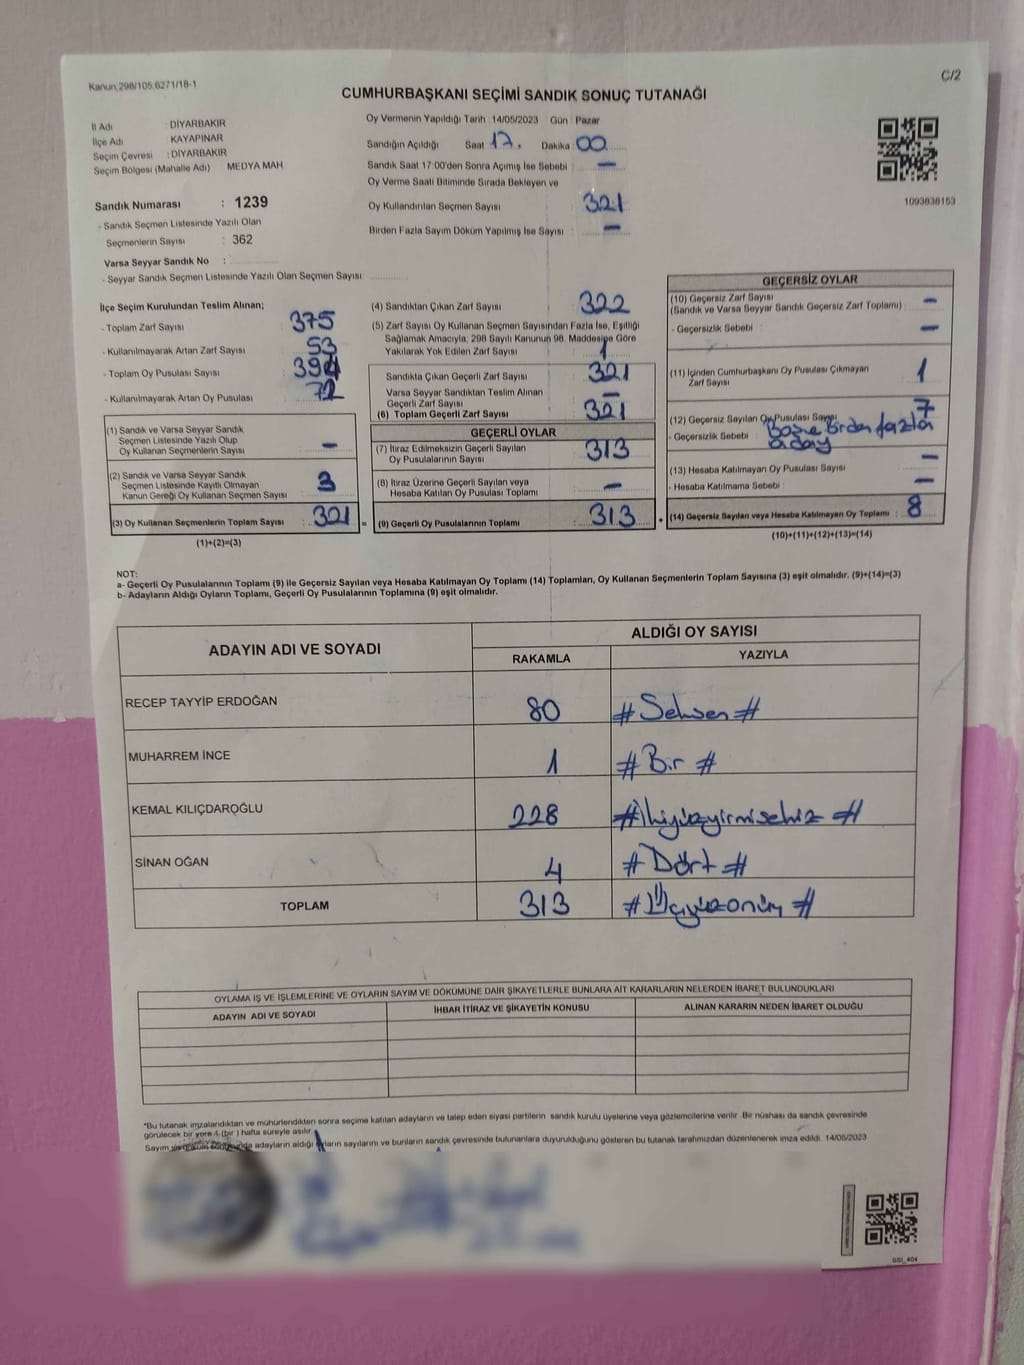 Kanun.298/105,6271/18-1
C/2
CUMHURBAŞKANI SEÇİMİ SANDIK SONUÇ TUTANAĞI
İl Adı : DİYARBAKIR
İlçe Adı : KAYAPINAR
Seçim Çevresi : DİYARBAKIR
Seçim Bölgesi (Mahalle Adı) MEDYA MAH
Sandık Numarası : 1239
- Sandık Seçmen Listesinde Yazılı Olan
Seçmenlerin Sayısı : 362
Varsa Seyyar Sandık No :
- Seyyar Sandık Seçmen Listesinde Yazılı Olan Seçmen Sayısı
Oy Vermenin Yapıldığı Tarih :14/05/2023 Gün : Pazar
Sandığın Açıldığı Saat : 17. Dakika : 00
Sandık Saat 17:00'den Sonra Açımış İse Sebebi : –
Oy Verme Saati Bitiminde Sırada Bekleyen ve
Oy Kullandırılan Seçmen Sayısı : 321
Birden Fazla Sayım Döküm Yapılmış İse Sayısı : –
1093838153
İlçe Seçim Kurulundan Teslim Alınan;
- Toplam Zarf Sayısı : 375
- Kullanılmayarak Artan Zarf Sayısı : 53
- Toplam Oy Pusulası Sayısı : 394
- Kullanılmayarak Artan Oy Pusulası : 72
(1) Sandık ve Varsa Seyyar Sandık
Seçmen Listesinde Yazılı Olup
Oy Kullanan Seçmenlerin Sayısı : –
(2) Sandık ve Varsa Seyyar Sandık
Seçmen Listesinde Kayıtlı Olmayan
Kanun Gereği Oy Kullanan Seçmen Sayısı : 3
(3) Oy Kullanan Seçmenlerin Toplam Sayısı : 321 =
(1)+(2)=(3)
(4) Sandıktan Çıkan Zarf Sayısı : 322
(5) Zarf Sayısı Oy Kullanan Seçmen Sayısından Fazla İse, Eşitliği
Sağlamak Amacıyla; 298 Sayılı Kanunun 98. Maddesine Göre
Yakılarak Yok Edilen Zarf Sayısı : 1
Sandıkta Çıkan Geçerli Zarf Sayısı : 321
Varsa Seyyar Sandıktan Teslim Alınan
Geçerli Zarf Sayısı : –
(6) Toplam Geçerli Zarf Sayısı : 321
GEÇERLİ OYLAR
(7) İtiraz Edilmeksizin Geçerli Sayılan
Oy Pusulalarının Sayısı : 313
(8) İtiraz Üzerine Geçerli Sayılan veya
Hesaba Katılan Oy Pusulası Toplamı : –
(9) Geçerli Oy Pusulalarının Toplamı : 313 +
GEÇERSİZ OYLAR
(10) Geçersiz Zarf Sayısı
(Sandık ve Varsa Seyyar Sandık Geçersiz Zarf Toplamı) : –
- Geçersizlik Sebebi : –
(11) İçinden Cumhurbaşkanı Oy Pusulası Çıkmayan
Zarf Sayısı : 1
(12) Geçersiz Sayılan Oy Pusulası Sayısı 7
- Geçersizlik Sebebi : Birden fazla
aday
(13) Hesaba Katılmayan Oy Pusulası Sayısı : –
- Hesaba Katılmama Sebebi : –
(14) Geçersiz Sayılan veya Hesaba Katılmayan Oy Toplamı : 8
(10)+(11)+(12)+(13)=(14)
NOT:
a- Geçerli Oy Pusulalarının Toplamı (9) ile Geçersiz Sayılan veya Hesaba Katılmayan Oy Toplamı (14) Toplamları, Oy Kullanan Seçmenlerin Toplam Sayısına (3) eşit olmalıdır. (9)+(14)=(3)
b- Adayların Aldığı Oyların Toplamı, Geçerli Oy Pusulalarının Toplamına (9) eşit olmalıdır.
ADAYIN ADI VE SOYADI
ALDIĞI OY SAYISI
RAKAMLA YAZIYLA
RECEP TAYYİP ERDOĞAN 80 #Seksen#
MUHARREM İNCE 1 #Bir#
KEMAL KILIÇDAROĞLU 228 #İkiyüzyirmisekiz#
SİNAN OĞAN 4 #Dört#
TOPLAM 313 #Üçyüzonüç#
OYLAMA İŞ VE İŞLEMLERİNE VE OYLARIN SAYIM VE DÖKÜMÜNE DAİR ŞİKAYETLERLE BUNLARA AİT KARARLARIN NELERDEN İBARET BULUNDUKLARI
ADAYIN ADI VE SOYADI İHBAR İTİRAZ VE ŞİKAYETİN KONUSU ALINAN KARARIN NEDEN İBARET OLDUĞU
*Bu tutanak imzalandıktan ve mühürlendikten sonra seçime katılan adayların ve talep eden siyasi partilerin sandık kurulu üyelerine veya gözlemcilerine verilir. Bir nüshası da sandık çevresinde
görülecek bir yere 1 (bir ) hafta süreyle asılır.
Sayım adayların aldığı oyların sayılarını ve bunların sandık çevresinde bulunanlara duyurulduğunu gösteren bu tutanak tarafımızdan düzenlenerek imza edildi. 14/05/2023
GSI_404